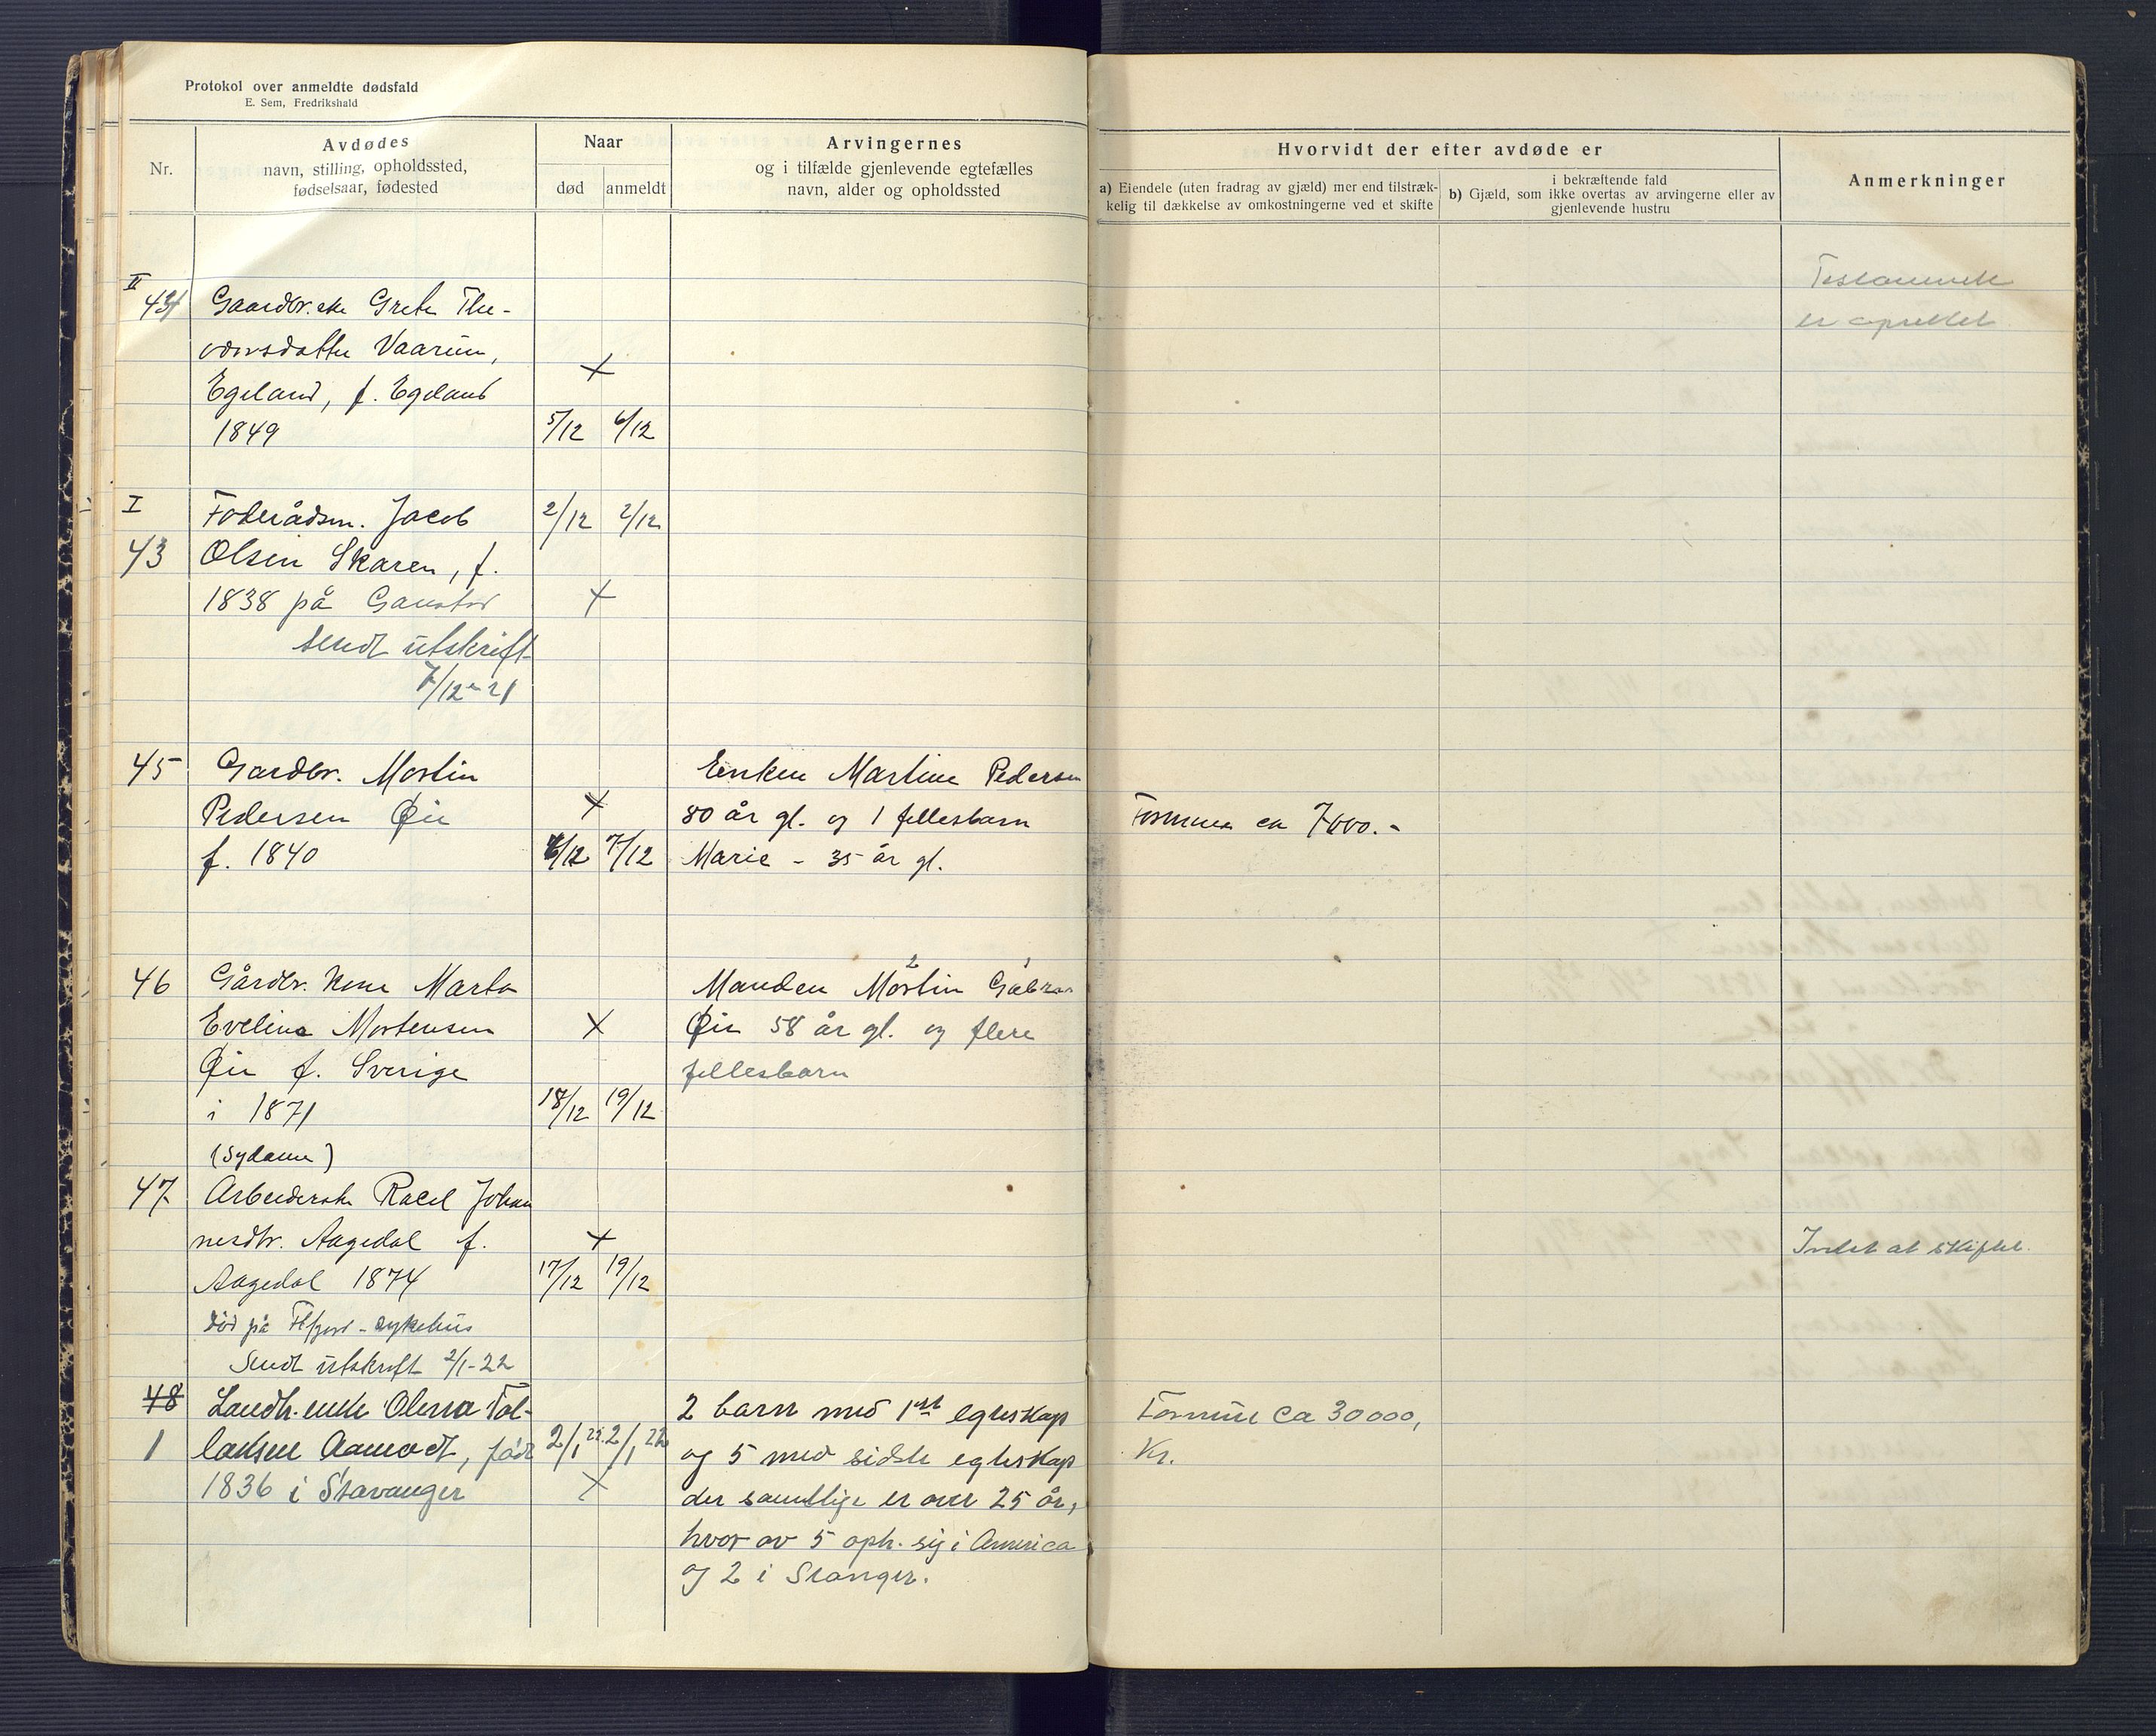 Protokol over anmeldte dødsfald
E. Sem, Fredrikshald
Nr.
Avdødes
navn, stilling, opholdssted,
fødselsaar, fødested
Naar
død
anmeldt
Arvingernes
og i tilfælde gjenlevende egtefælles
navn, alder og opholdssted
Hvorvidt der efter avdøde er
a) Eiendele (uten fradrag av gjæld) mer end tilstræk-
kelig til dækkelse av omkostningerne ved et skifte
i bekræftende fald
b) Gjæld, som ikke overtas av arvingerne eller av
gjenlevende hustru
Anmerkninger
II
Gaardbr. Grete
Vaarum,
Egeland, f. Egeland
1849
5/12 6/12
Testamente
er oprettet
I
43
Foderådsm. Jacob
Olsen Skaren, f.
1838 på
sendt utskrift
7/12-21
2/12 2/12
45
Gardbr. Mortin
Pedersen Øie
f. 1840
6/12 7/12
Enken Martine Pedersen
80 år gl. og 1 fellesbarn
Marie - 35 år gl.
Formue ca 7000.-
46
Gårdbr. kone Marta
Eveline Mortensen
Øie f. Sverige
i 1871
18/12 19/12
Manden Mortin
Øie 58 år gl. og flere
fellesbarn
47
Arbeiderske Racel Johan
nesdtr. Aagedal f.
Aagedal 1874
død på sykehus
Sendt utskrift 2/1-22
17/12 19/12
Intet at skifte.
48
1
Olena Tol-
laksen Aamodt, født
1836 i Stavanger
2/1 22 2/1 22
2 barn med 1st egteskap
og 5 med sidste egteskap
der samtlige er over 25 år,
hvor av 5 oph. sig i America
og 2 i Stanger.
Formue ca 30000,
Kr.